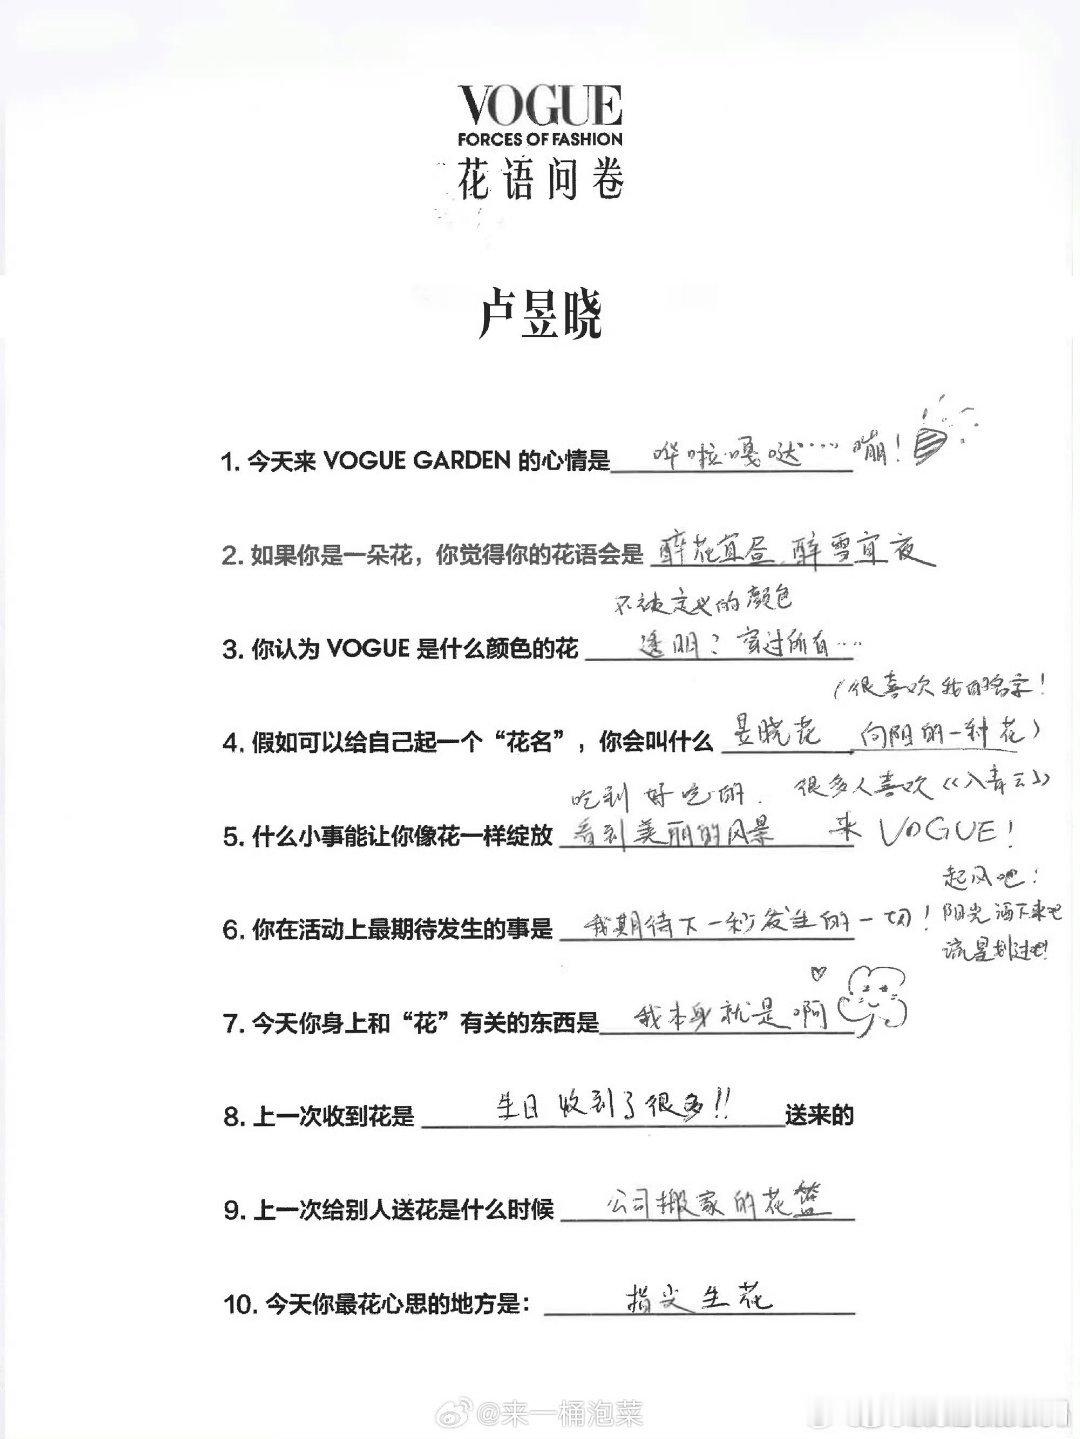 VOGUE
FORCES OF FASHION
花语问卷
卢昱晓
1. 今天来 VOGUE GARDEN 的心情是 哗啦嘎哒…… 嘣！
2. 如果你是一朵花，你觉得你的花语会是 醉花宜昼 醉雪宜夜
不被定义的颜色
3. 你认为 VOGUE 是什么颜色的花 透明？穿过所有……
（很喜欢我的名字！
4. 假如可以给自己起一个“花名”，你会叫什么 昱晓花 向阳的一种花）
吃到好吃的. 很多人喜欢《入青云》
5. 什么小事能让你像花一样绽放 看到美丽的风景 来 VOGUE！
起风吧！
6. 你在活动上最期待发生的事是 我期待下一秒发生的一切！阳光洒下来吧
流星划过吧！
7. 今天你身上和“花”有关的东西是 我本身就是啊
8. 上一次收到花是 生日收到了很多!! 送来的
9. 上一次给别人送花是什么时候 公司搬家的花篮
10. 今天你最花心思的地方是： 指尖生花
@来一桶泡菜